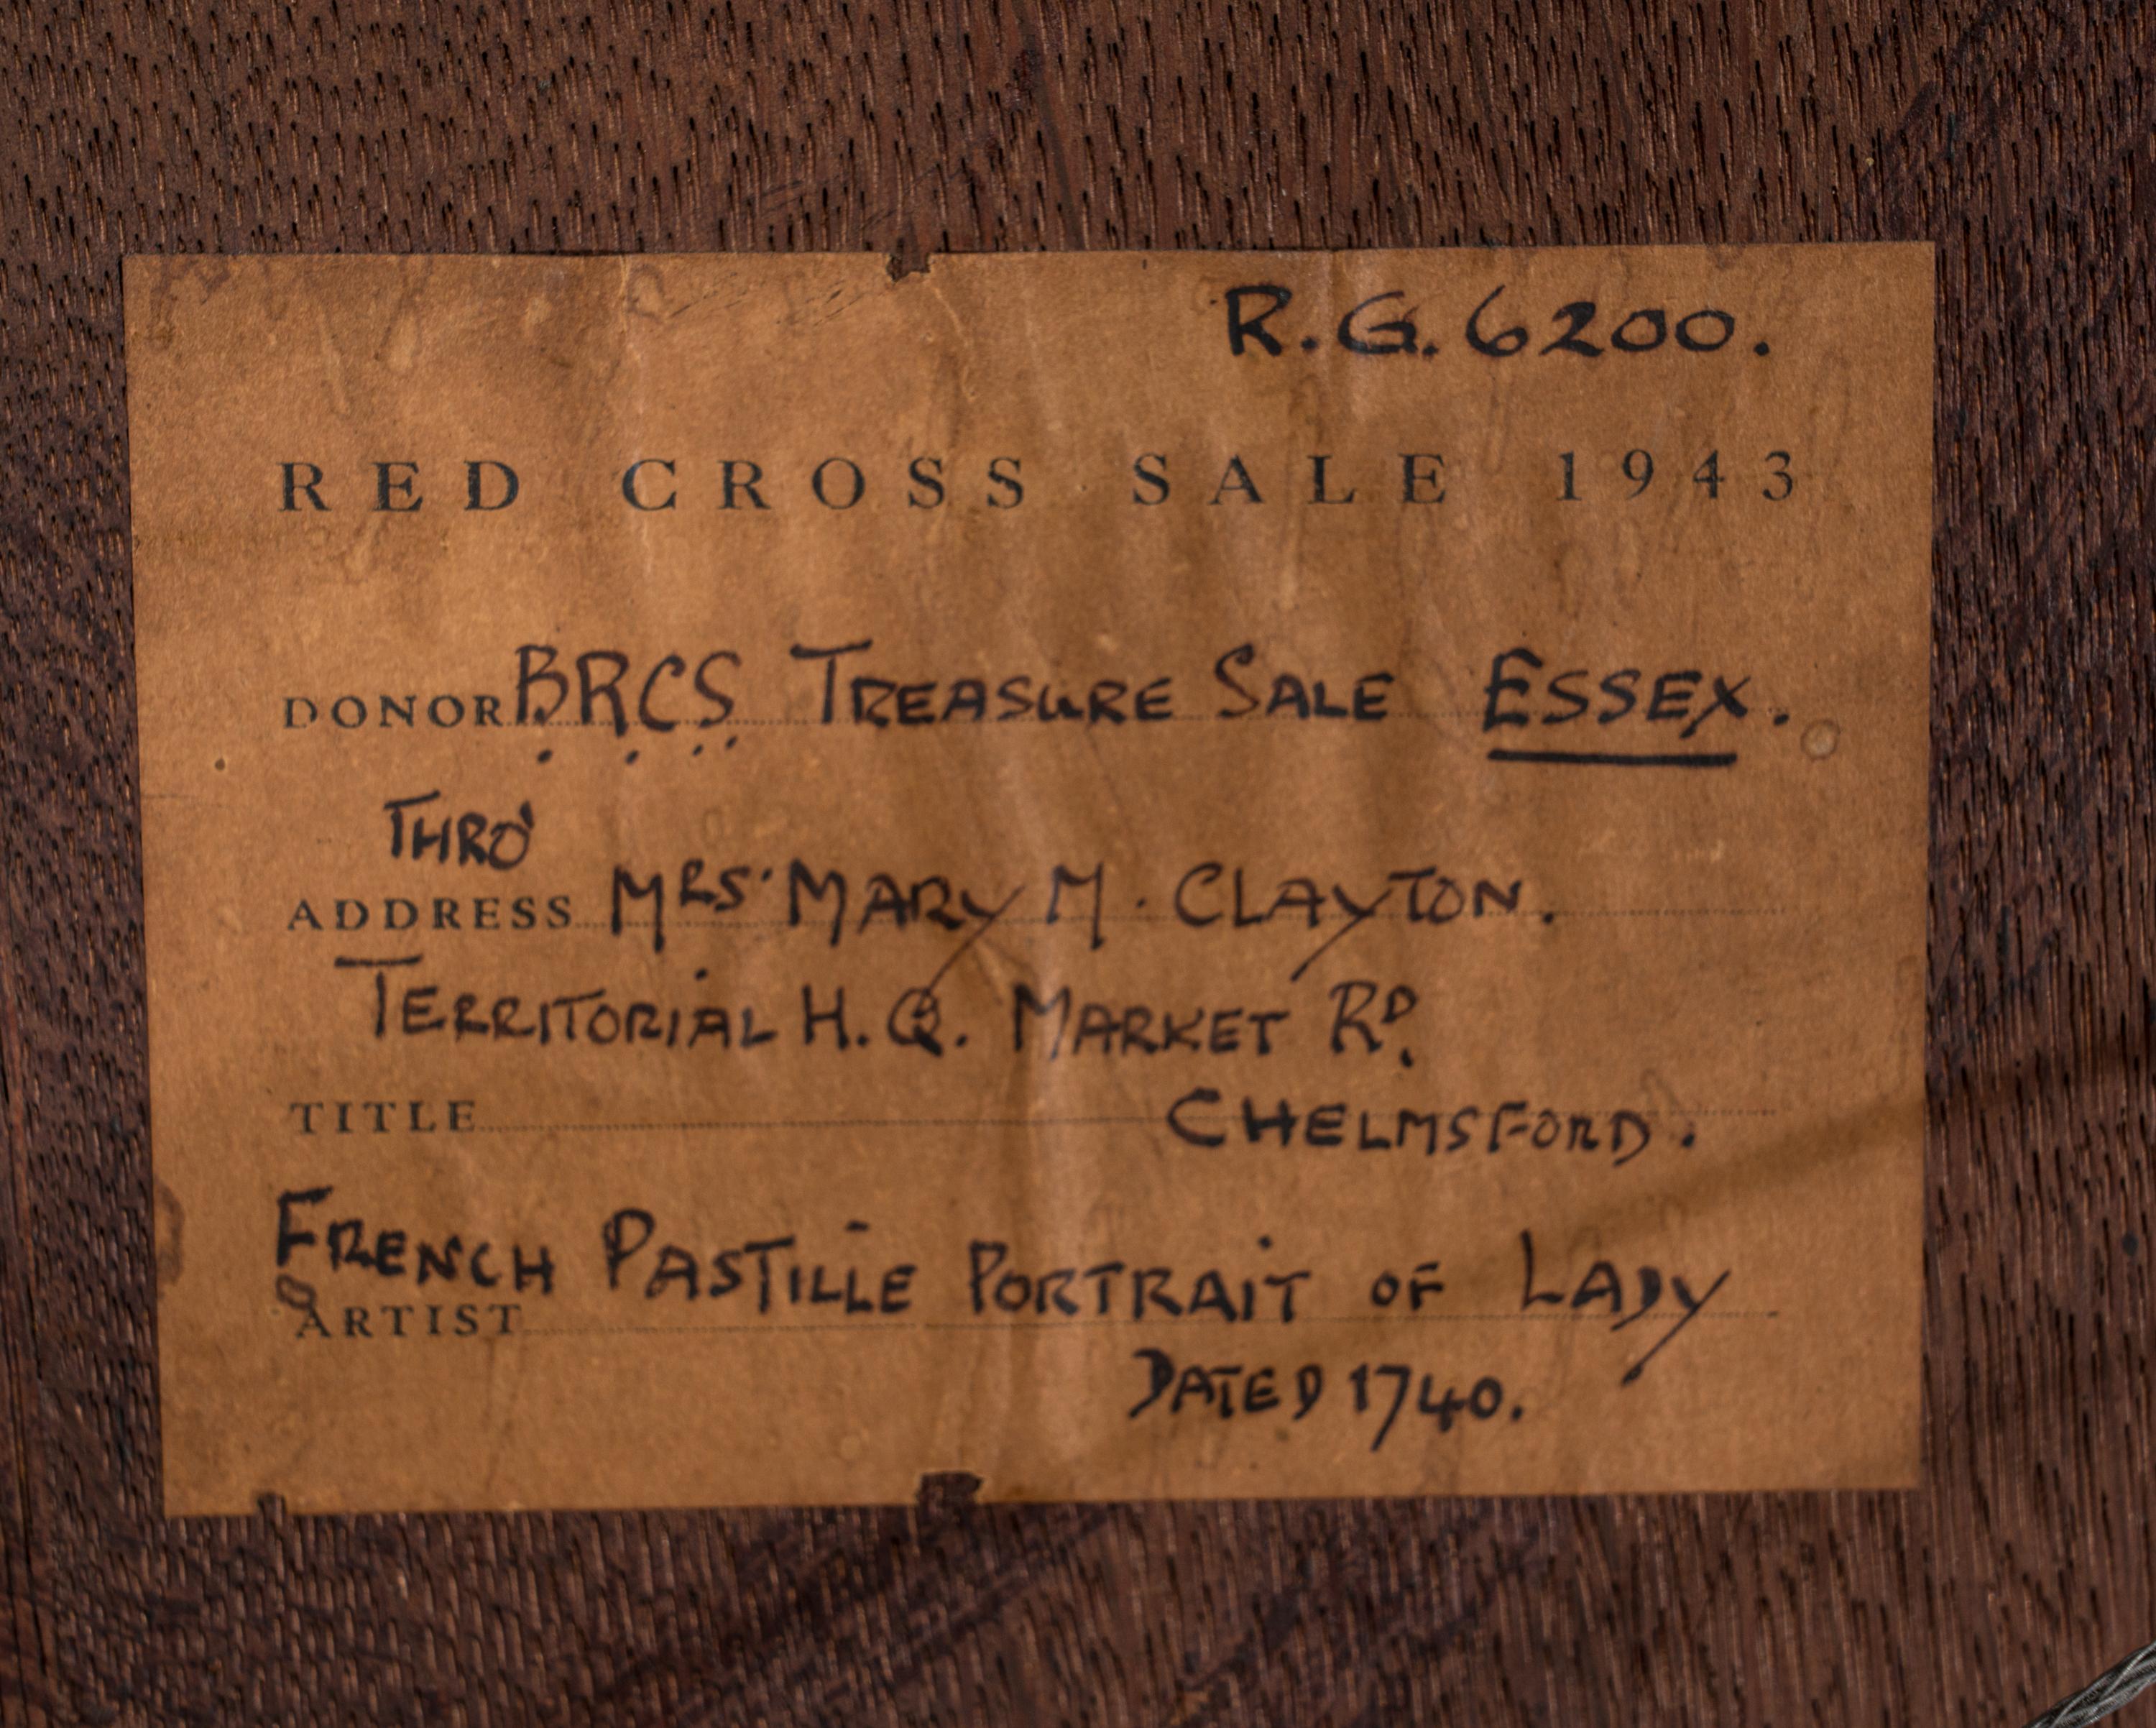 R.G. 6200.
RED CROSS SALE 1943
DONOR BRCS TREASURE SALE ESSEX.
THRO'
ADDRESS MRS. MARY M. CLAYTON.
TERRITORIAL H.Q. MARKET RD.
TITLE CHELMSFORD.
FRENCH PASTILLE PORTRAIT OF LADY
ARTIST
DATED 1740.